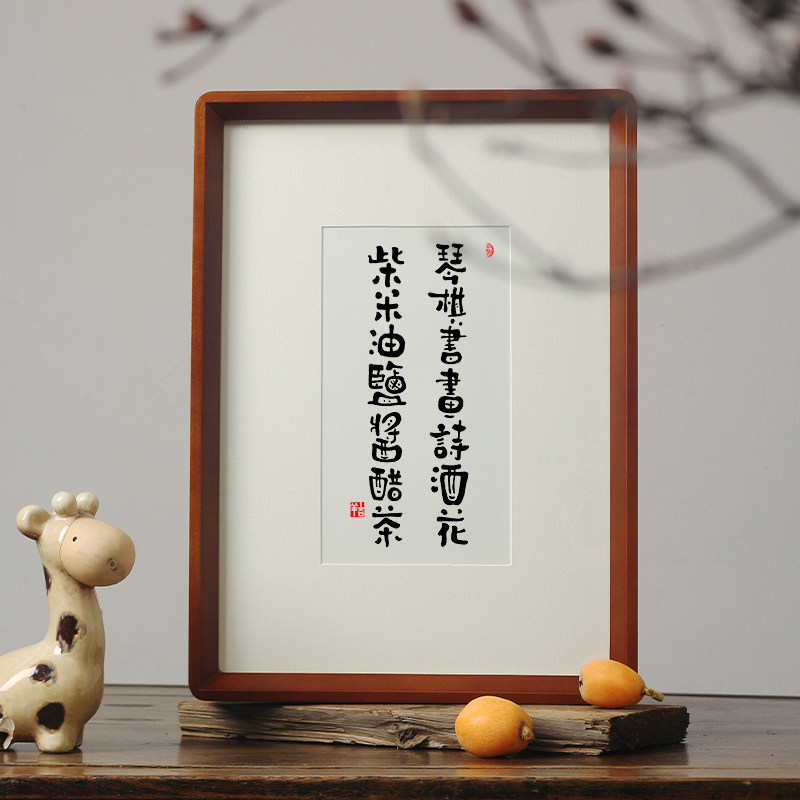 琴棋書畫詩酒花
柴米油鹽醬醋茶